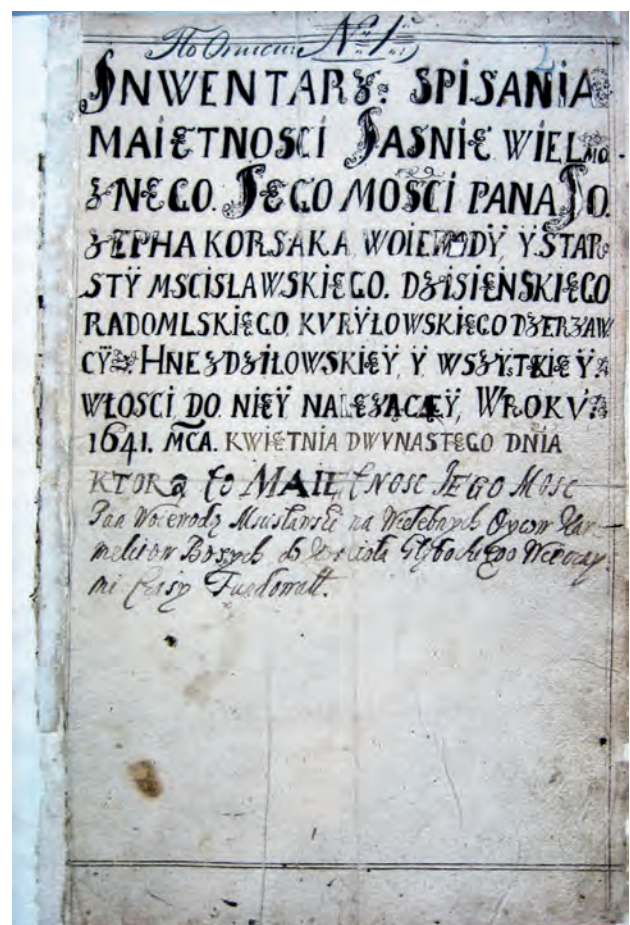 No 1
2
INWENTARZ: SPİSANİA
MAİĘTNOSCİ JASNİE WİELMO
ZNEGO. JEGO MOSCİ PANA JO.
ZEPHA KORSAKA WOIEWODŸ, Ÿ STAR
STŸ MSCİSLAWSKİEGO. DZİSİEŃSKİEGO
RADOMLSKİEGO, KVRŸŁOWSKİEGO DZERZAW
CŸ HNEZDZİŁOWSKİEŸ, Ÿ WSZŸTKİEŸ
WŁOSCİ DO NİEŸ NALEZĄCEŸ, WROKV
1641. MCA. KWİETNİA DWVNASTEGO DNİA
KTORĄ to MAIĘtNOSC JEGO Mosc
Pan Woiewoda Mscisławski na Wielebnych Oycow Kar
melitow Bosych do Kosciola Głębockiego Wieczny
mi czasy Fundowall.